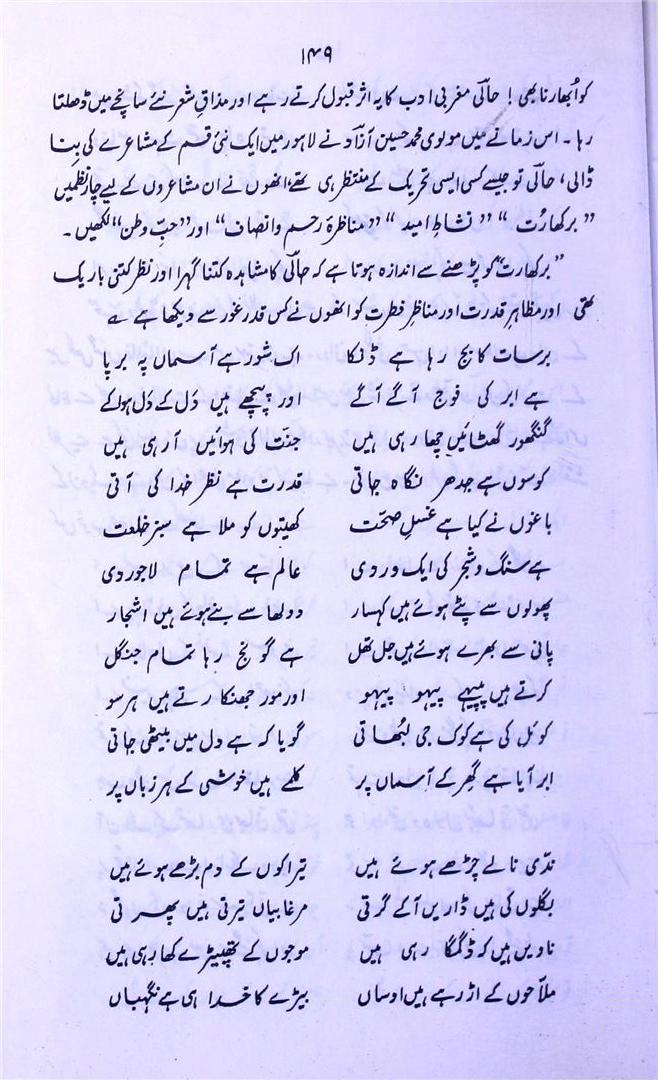 ۱۴۹
کو اُبھارنا بھی! حالؔی مغربی ادب کا یہ اثر قبول کرتے رہے اور مذاقِ شعر نئے سانچے میں ڈھلتا
رہا۔ اس زمانے میں مولوی محمد حسین آزاد نے لاہور میں ایک نئی قسم کے مشاعرے کی بِنا
ڈالی، حالؔی تو جیسے کسی ایسی تحریک کے منتظر ہی تھے، انھوں نے ان مشاعروں کے لیے چار نظمیں
”برکھارُت“ ”نشاطِ امید“ ”مناظرۂ رحم و انصاف“ اور ”حبِّ وطن“ لکھیں۔
”برکھارت“ کو پڑھنے سے اندازہ ہوتا ہے کہ حالؔی کا مشاہدہ کتنا گہرا اور نظر کتنی باریک
تھی اور مظاہرِ قدرت اور مناظرِ فطرت کو انھوں نے کس قدر غور سے دیکھا ہے ؎
برسات کا بج رہا ہے ڈنکا اک شور ہے آسماں پہ برپا
ہے ابر کی فوج آگے آگے اور پیچھے ہیں دَل کے دَل ہوا کے
گنگھور گھٹائیں چھا رہی ہیں جنّت کی ہوائیں آ رہی ہیں
کوسوں ہے جدھر نگاہ جاتی قدرت ہے نظر خدا کی آتی
باغوں نے کیا ہے غسلِ صحّت کھیتوں کو ملا ہے سبز خلعت
ہے سنگ و شجر کی ایک وردی عالم ہے تمام لاجوردی
پھولوں سے پٹے ہوئے ہیں کہسار دولھا سے بنے ہوئے ہیں اشجار
پانی سے بھرے ہوئے ہیں جل تھل ہے گونج رہا تمام جنگل
کرتے ہیں پپیہے پیہو پیہو اور مور جھنکارتے ہیں ہر سو
کوئل کی ہے کوک جی لبُھاتی گویا کہ ہے دل میں بیٹھی جاتی
ابر آیا ہے گھِر کے آسماں پر کلمے ہیں خوشی کے ہر زباں پر
ندّی نالے چڑھے ہوئے ہیں تیراکوں کے دم بڑھے ہوئے ہیں
بگلوں کی ہیں ڈاریں آکے گرتی مرغابیاں تیرتی ہیں پھرتی
ناویں ہیں کہ ڈگمگا رہی ہیں موجوں کے تھپیڑے کھا رہی ہیں
ملّاحوں کے اڑ رہے ہیں اوساں بیڑے کا خدا ہی ہے نگہباں